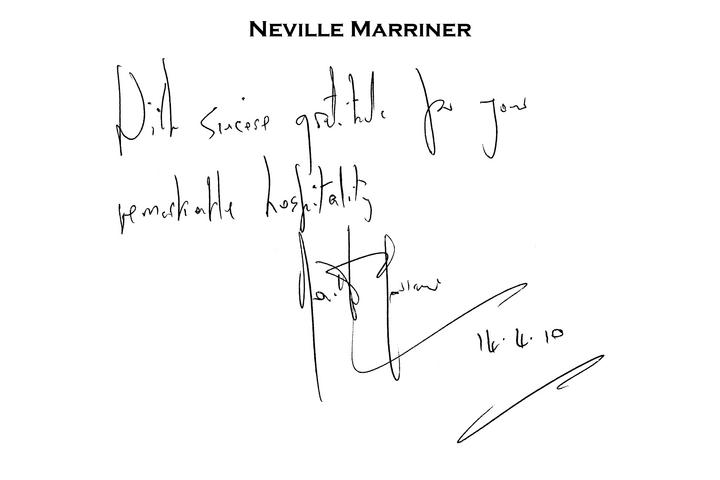 NEVILLE MARRINER
With sincere gratitude for your
remarkable hospitality
14.4.10